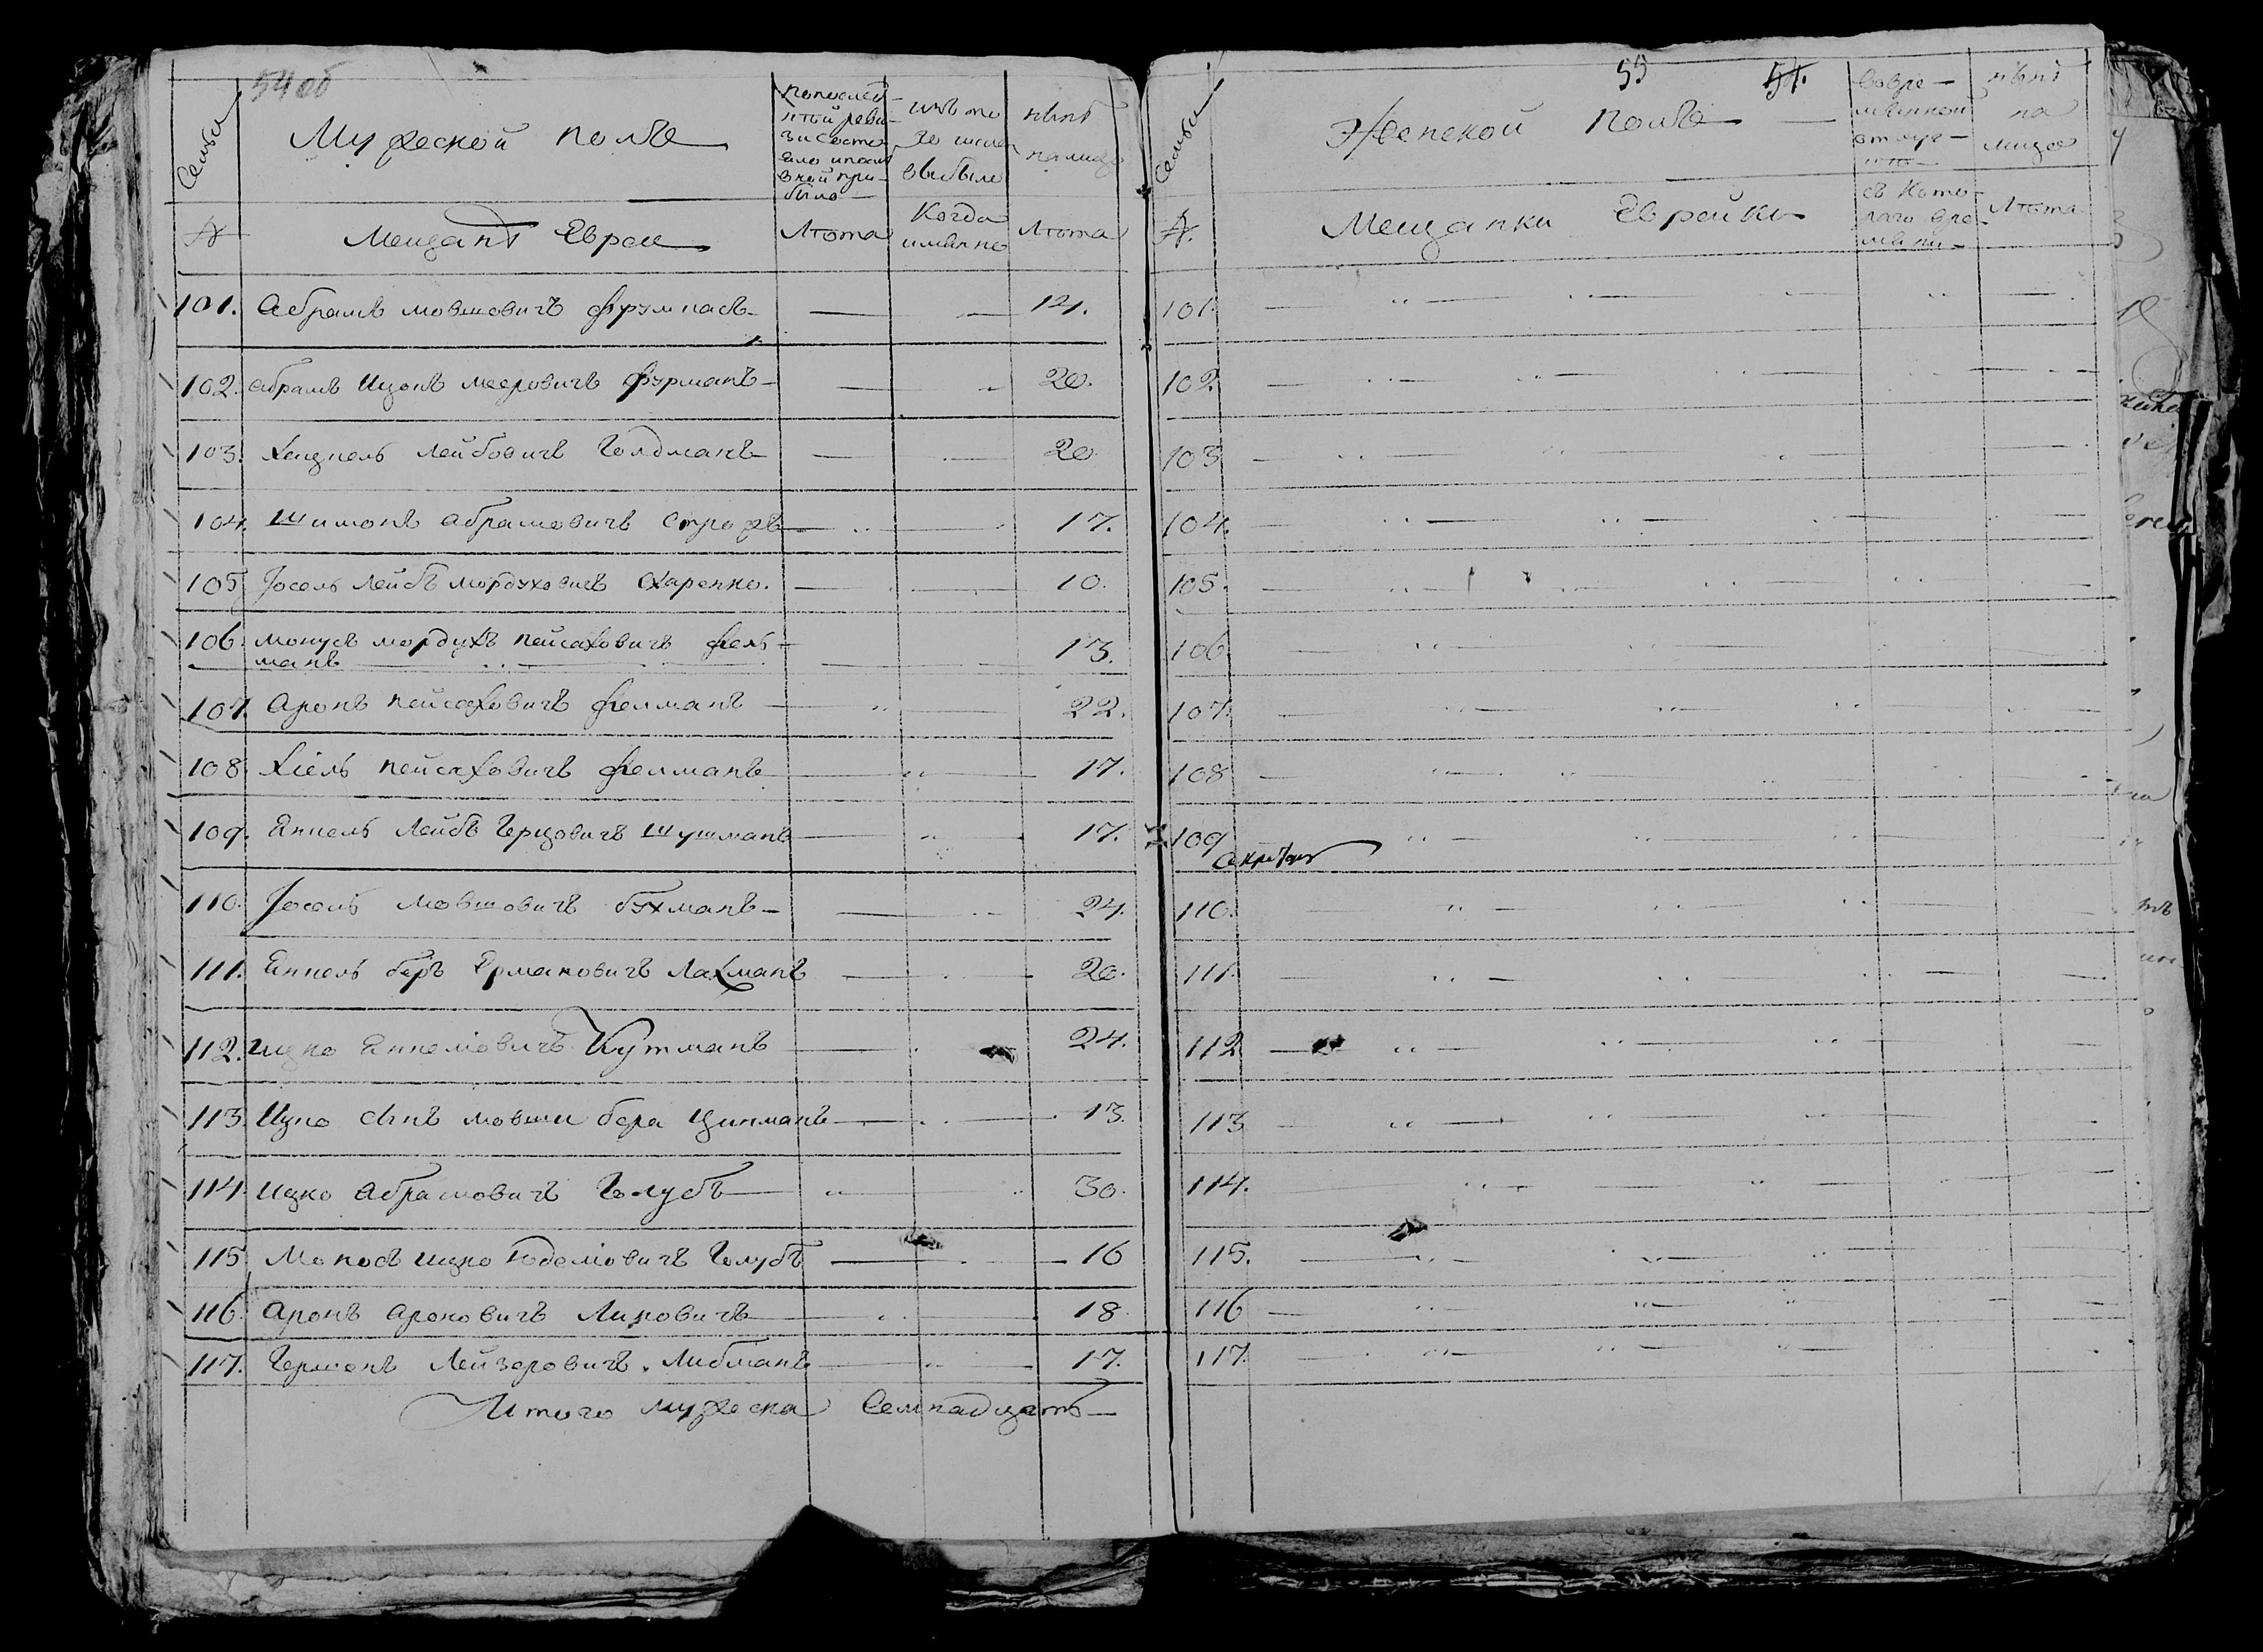 54 об
Семьи
Мужеской полъ
по послед-
ньей реви-
зи состо
яло и посл
в ной при-
было
изъ то
го числа
выбыло
нынѣ
на лицо
№
Мещанѣ Евреи
Лѣта
Когда
имянно
Лѣта
101. Абрамъ Мовшовичъ Фрумпасъ 14.
102. Абрамъ Ицокъ Мееровичъ Фурманъ 20.
103. Хацкель Лейбовичъ Голдманъ 20
104. Шимонъ Абрамовичъ 17.
105 Іосель Лейбъ Мордуховичъ 10.
106. Монусъ Мордухъ Пейсаховичъ Фель-
манъ 13.
107. Аронъ Пейсаховичъ Фелманъ 22.
108. Хіель Пейсаховичъ Фелманъ 17.
109. Янкель Лейбъ Герцовичъ Шушманъ 17.
110. Іосель Мовшовичъ Бухманъ 24.
111. Янкель Беръ Ермановичъ Лахманъ 20.
112. Ицко Янкелювичъ Кутманъ 24.
113. Ицко сынъ Мовши Бера Ципманъ 13.
114. Ицко Абрамовичъ Голубъ 30.
115 Моносъ Ицко Юделювичъ Голубъ 16
116. Аронъ Ароновичъ Липовичъ 18
117. Гершонъ Лейзоровичъ Либманъ 17.
Итого мужеска Семнадцать
55 54.
Семьи
Женской полъ
во вре-
мянной
отлуч-
нынѣ
на
лицо
№.
Мещанки Еврейки
съ кото-
раго вре-
мяни
Лѣта
101.
102
103
104.
105.
106
107.
108
109
110.
111.
112
113
114.
115.
116
117.